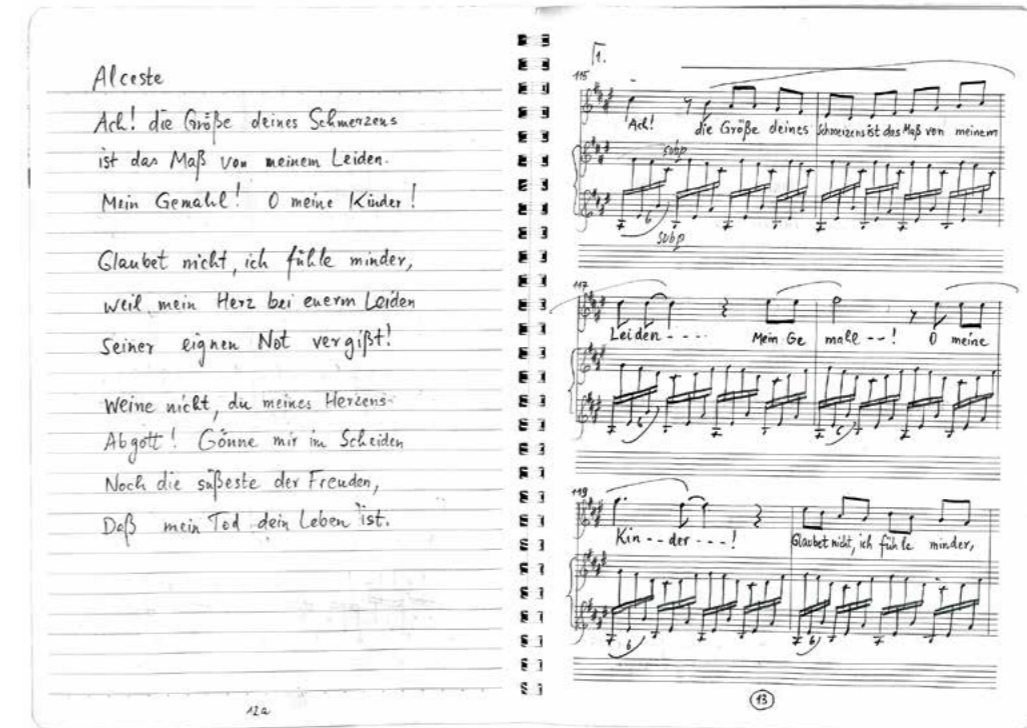 Alceste
Ach! die Größe deines Schmerzens
ist das Maß von meinem Leiden.
Mein Gemahl! O meine Kinder!
Glaubet nicht, ich fühle minder,
weil mein Herz bei euerm Leiden
seiner eignen Not vergißt!
Weine nicht, du meines Herzens
Abgott! Gönne mir im Scheiden
Noch die süßeste der Freuden,
Daß mein Tod dein Leben ist.
12a
1.
115
Ach! die Größe deines Schmerzens ist das Maß von meinem
subp
6
subp
117
Leiden - - - - Mein Ge mahl - - ! O meine
6 6
119
Kin - - der - - - ! Glaubet nicht, ich füh le minder,
6 6
13